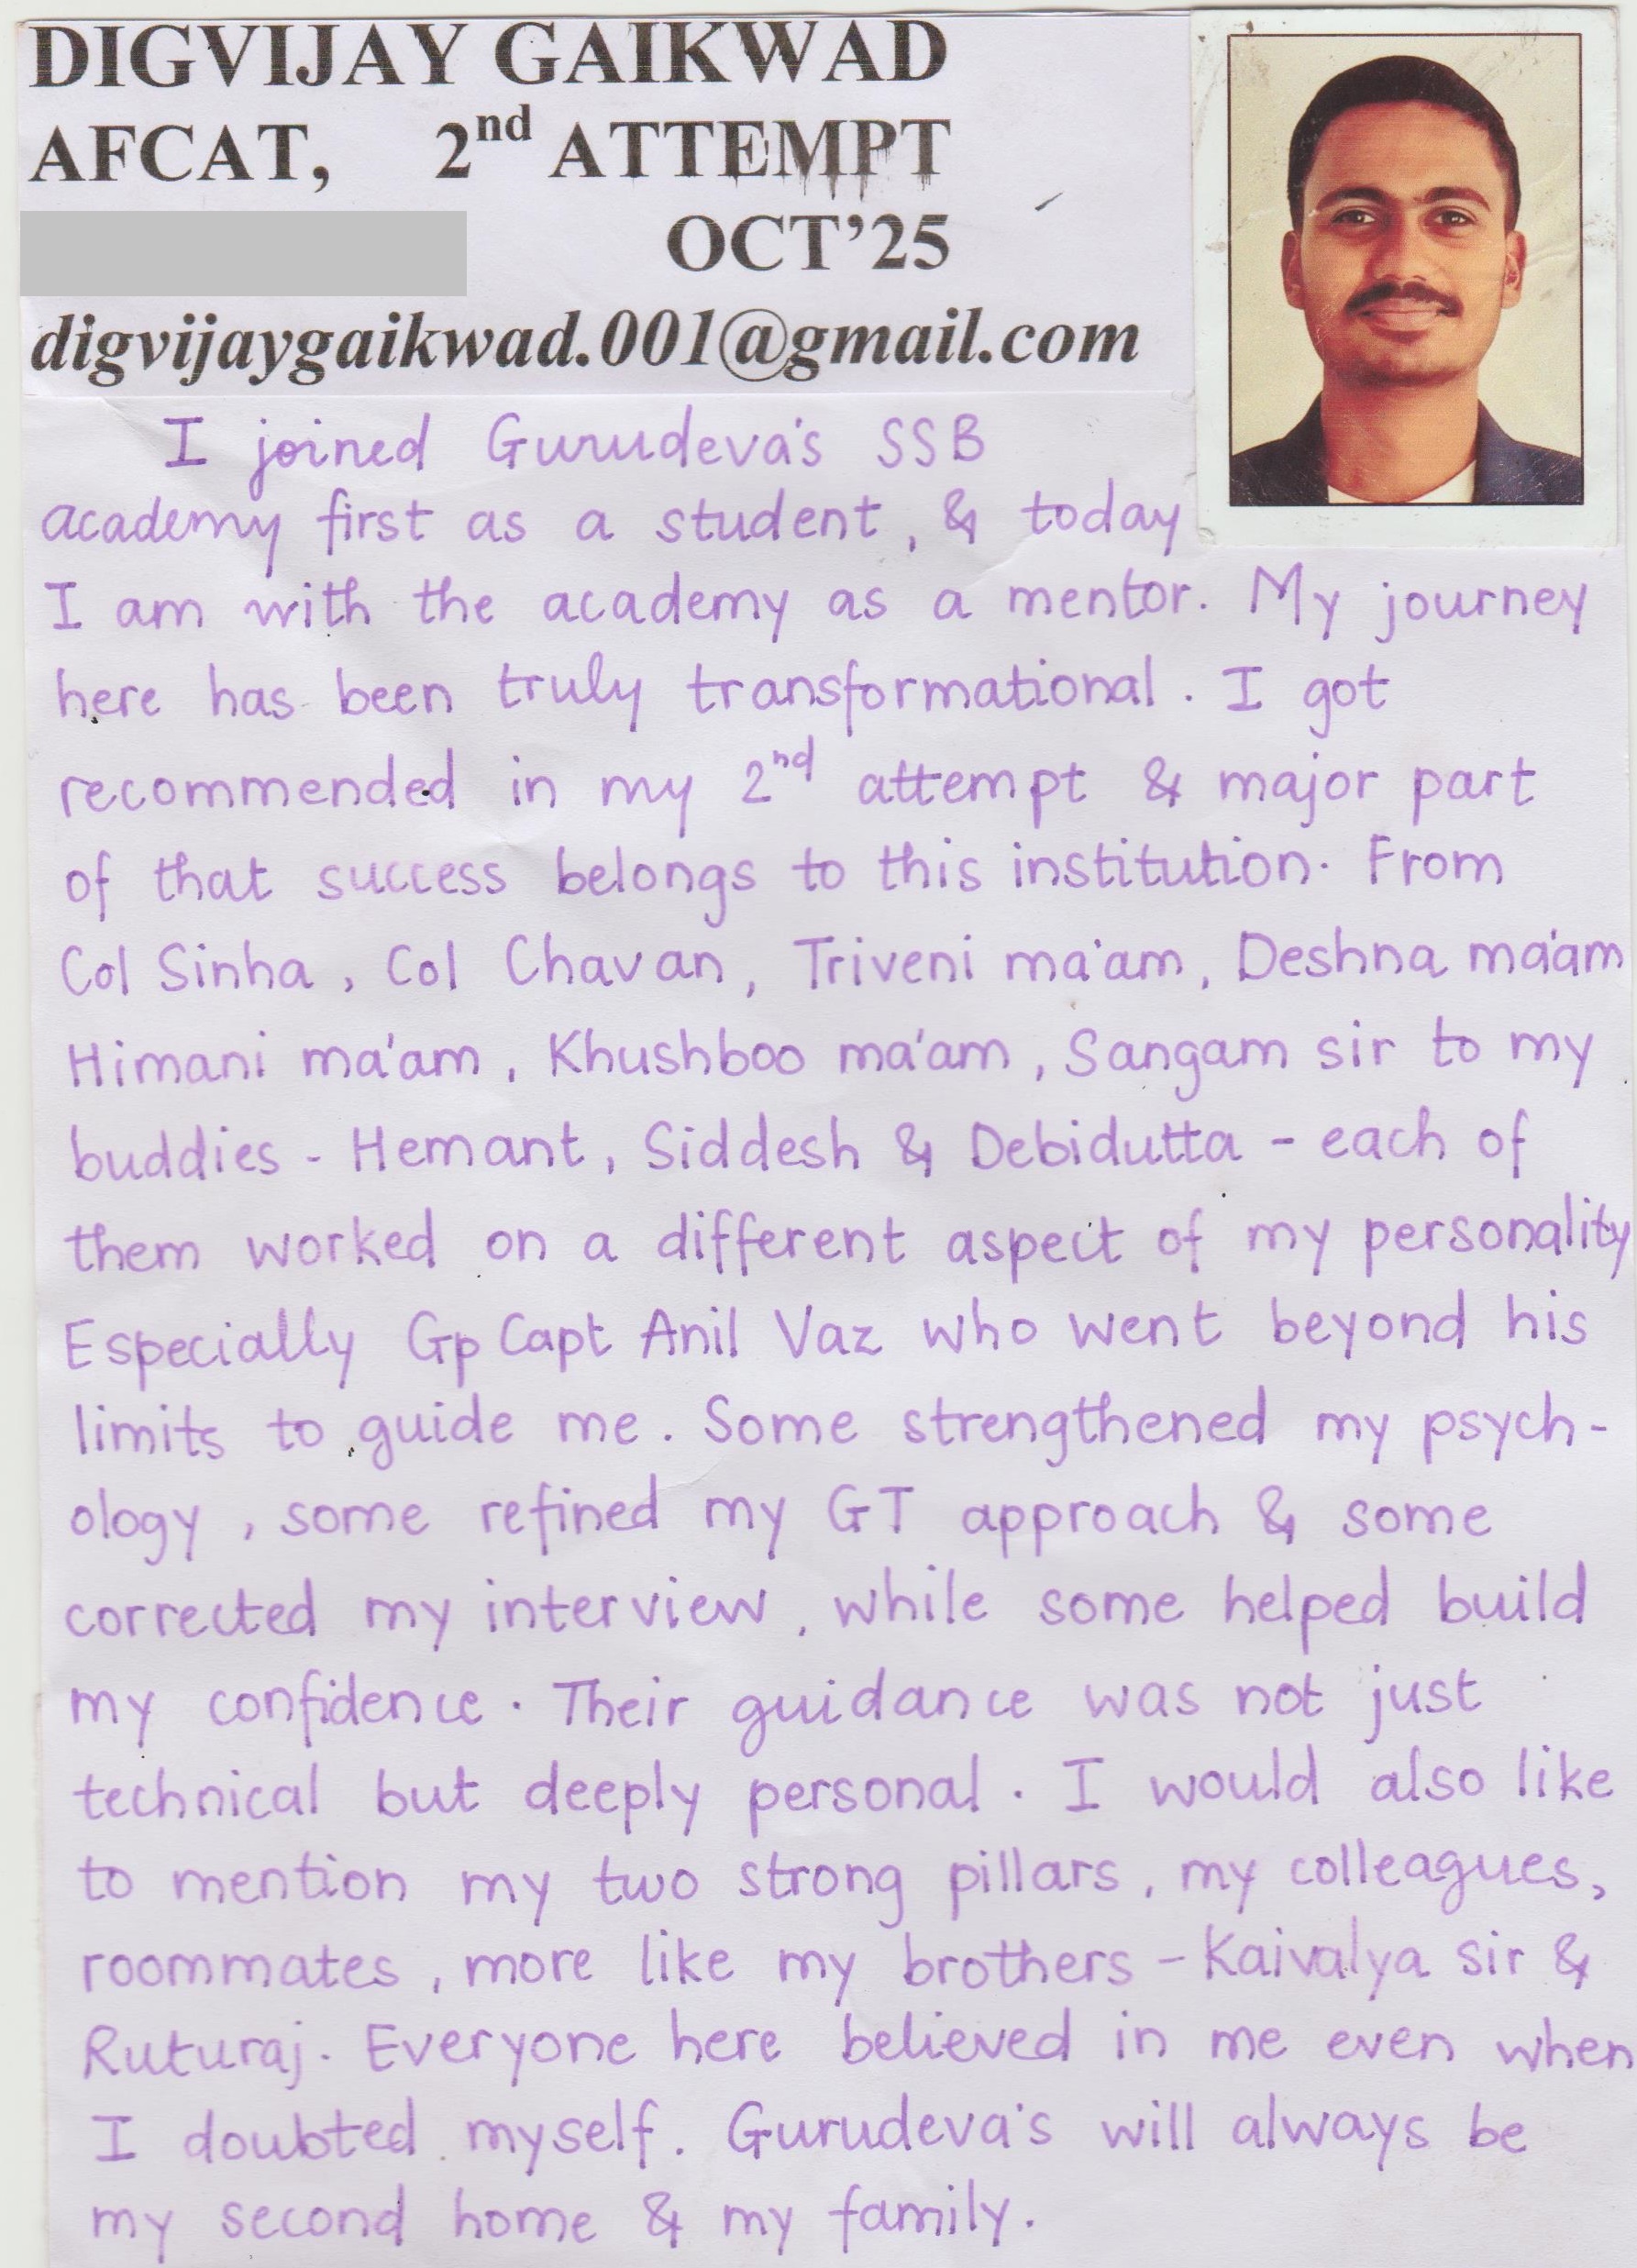 DIGVIJAY GAIKWAD
AFCAT, 2nd ATTEMPT
OCT'25
digvijaygaikwad.001@gmail.com
I joined Gurudeva's SSB
academy first as a student, & today
I am with the academy as a mentor. My journey
here has been truly transformational. I got
recommended in my 2nd attempt & major part
of that success belongs to this institution. From
Col Sinha, Col Chavan, Triveni ma'am, Deshna ma'am
Himani ma'am, Khushboo ma'am, Sangam sir to my
buddies - Hemant, Siddesh & Debidutta - each of
them worked on a different aspect of my personality
Especially Gp Capt Anil Vaz who went beyond his
limits to guide me. Some strengthened my psych-
ology, some refined my GT approach & some
corrected my interview, while some helped build
my confidence. Their guidance was not just
technical but deeply personal. I would also like
to mention my two strong pillars, my colleagues,
roommates, more like my brothers - Kaivalya sir &
Ruturaj. Everyone here believed in me even when
I doubted myself. Gurudeva's will always be
my second home & my family.